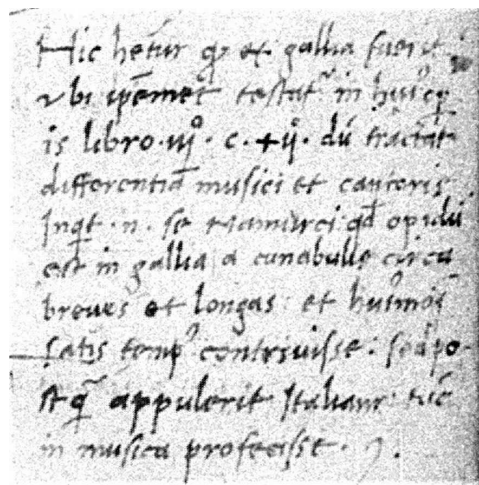 Hic hetur qd et gallia fuerit
ubi ipemet testat in hui
is libro . iij° . c . + ij° . dū tractat
differentiā musici et cantoris
Inqt . n . se Namurci qd opidū
est in gallia a cunabulis circa
breves et longas et hui9moi
satis temp9 contrivisse : sed po-
stq̄ appulerit Italiam tūc
in musica profecisse .